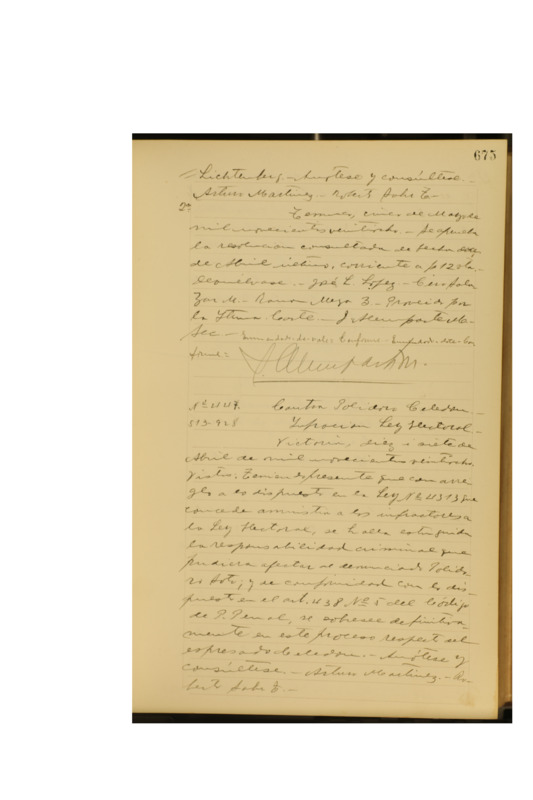 675
Lichtenberg. - Anótese y consúltese. -
Arturo Martínez - Robert Soto Z. -
2ª
Temuco, cinco de Mayo de
mil novecientos veintiocho. - Se aprueba
la resolucion consultada de fecha
de Abril último, corriente a f 12 vta.
Devuélvase. - José L. López - 
M. - Ramon Meza B. - Proveido por
la Iltma Corte - J. Alemparte M.
Sec -
Nº 4147. Contra Polidoro Celedon. -
513-928 Infraccion Ley Electoral. -
Victoria, diez i siete de
Abril de mil novecientos veintiocho.
Vistos: Teniendo presente que con arre-
glo a lo dispuesto en la Ley Nº 4313 que
concede amnistia a los infractores a
la Ley Electoral, se halla estinguida
la responsabilidad criminal que
pudiera afectar al denunciado Polido
ro Soto, y de conformidad con lo dis-
puesto en el art. 438 Nº 5 del Código
de P. Penal, se sobresee definitiva-
mente en este proceso respecto del
espresado Celedon. - Anótese y
consúltese. - Arturo Martínez. - Ro-
bert Soto Z. -